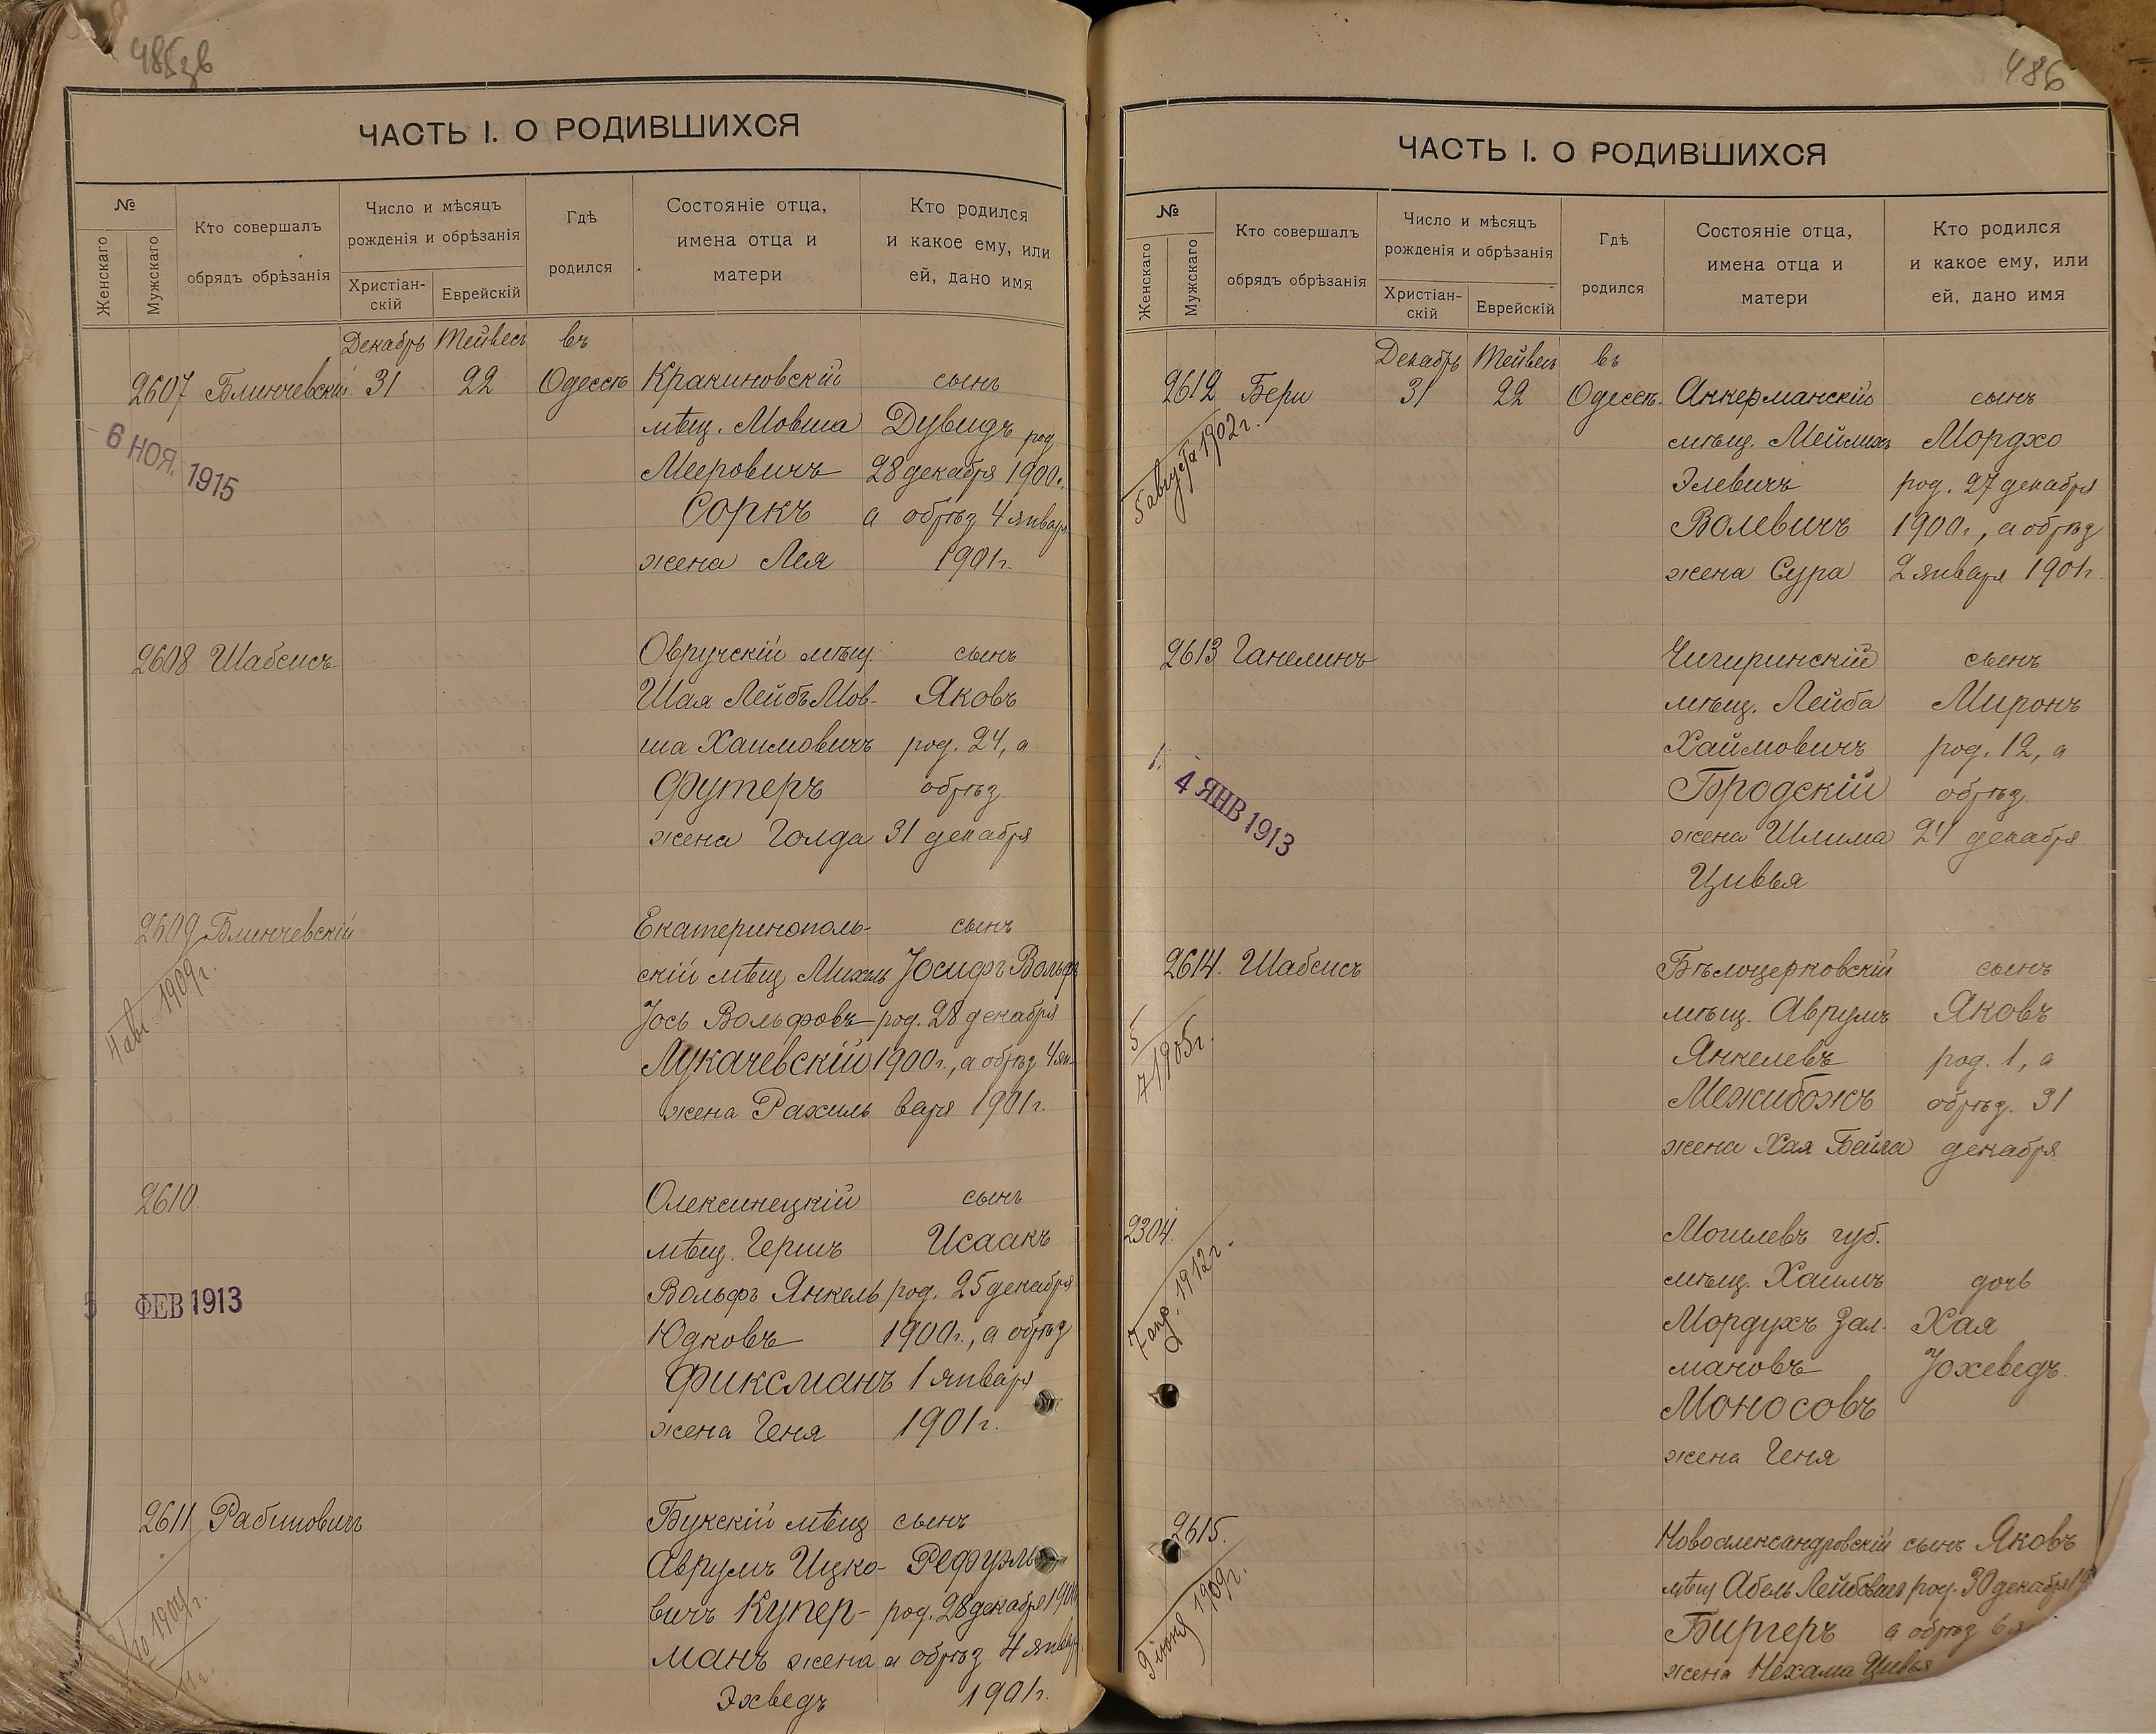 ЧАСТЬ I. О РОДИВШИХСЯ
№
Женскаго
Мужскаго
Кто совершалъ
обрядъ обрѣзанія
Число и мѣсяцъ
рожденія и обрѣзанія
Христіан-
скій
Еврейскій
Гдѣ
родился
Состояніе отца,
имена отца и
матери
Кто родился
и какое ему, или
ей, дано имя
Декабрь Тейвесъ въ
2607 Блинчевскій 31 22 Одессѣ Кракиновскій сынъ
мѣщ. Мовша Дувидъ род.
6 НОЯ. 1915
Мееровичъ 28 декабря 1900г.
Соркъ а обрѣз 4 января
жена Лея 1901г.
2608 Шабсисъ Овручскій мѣщ. сынъ
Шая Лейбъ Мов- Яковъ
ша Хаимовичъ род. 24, а
Футеръ обрѣз.
жена Голда 31 декабря
2609 Блинчевскій Екатеринополь- сынъ
скій мѣщ Михель Іосифъ Вольфъ
1909г.
Іось Вольфовъ род. 28 декабря
Лукачевскій 1900г., а обрѣз 4 ян-
жена Рахиль варя 1901г.
2610. Олексинецкій сынъ
мѣщ. Гершъ Исаакъ
Вольфъ Янкель род. 25 декабря
5 ФЕВ 1913
Юдковъ 1900г., а обрѣз
Фиксманъ 1 января
жена Геня 1901г.
2611 Рабиновичъ Букскій мѣщ сынъ
Аврумъ Ицко- Рефуэль
вичъ Купер- род. 28 декабря 1900
манъ жена а обрѣз 4 январ
Эхведъ 1901г.
486
ЧАСТЬ I. О РОДИВШИХСЯ
№
Женскаго
Мужскаго
Кто совершалъ
обрядъ обрѣзанія
Число и мѣсяцъ
рожденія и обрѣзанія
Христіан-
скій
Еврейскій
Гдѣ
родился
Состояніе отца,
имена отца и
матери
Кто родился
и какое ему, или
ей, дано имя
Декабрь Тейвесъ въ
2612 Бери 31 22 Одессѣ. Аккерманскій сынъ
5 августа 1902г.
мѣщ. Мейлихъ Мордхо
Элевичъ род. 27 декабря
Волевичъ 1900г., а обрѣз
жена Сура 2 января 1901г.
2613 Ганелинъ Чигиринскій сынъ
мѣщ. Лейба Миронъ
Хаймовичъ род. 12, а
4 ЯНВ 1913
Бродскій обрѣз
жена Шлима 24 декабря
Цивья
2614. Шабсисъ Бѣлоцерковскій сынъ
мѣщ. Аврумъ Яковъ
5/7 1905г.
Янкелевъ род. 1, а
Межибожъ обрѣз. 31
жена Хая Бейла декабря
2304. Могилевъ губ.
мѣщ. Хаимъ дочь
7 апр. 1912г.
Мордухъ Зал- Хая
мановъ Іохеведъ.
Моносовъ
жена Геня
2615. Новоалександровскій сынъ Яковъ
9 июня 1909г.
мѣщ Абель Лейбовичъ род. 30 декабря 19
Биргеръ а обрѣз 6 я
жена Нехама Цивья